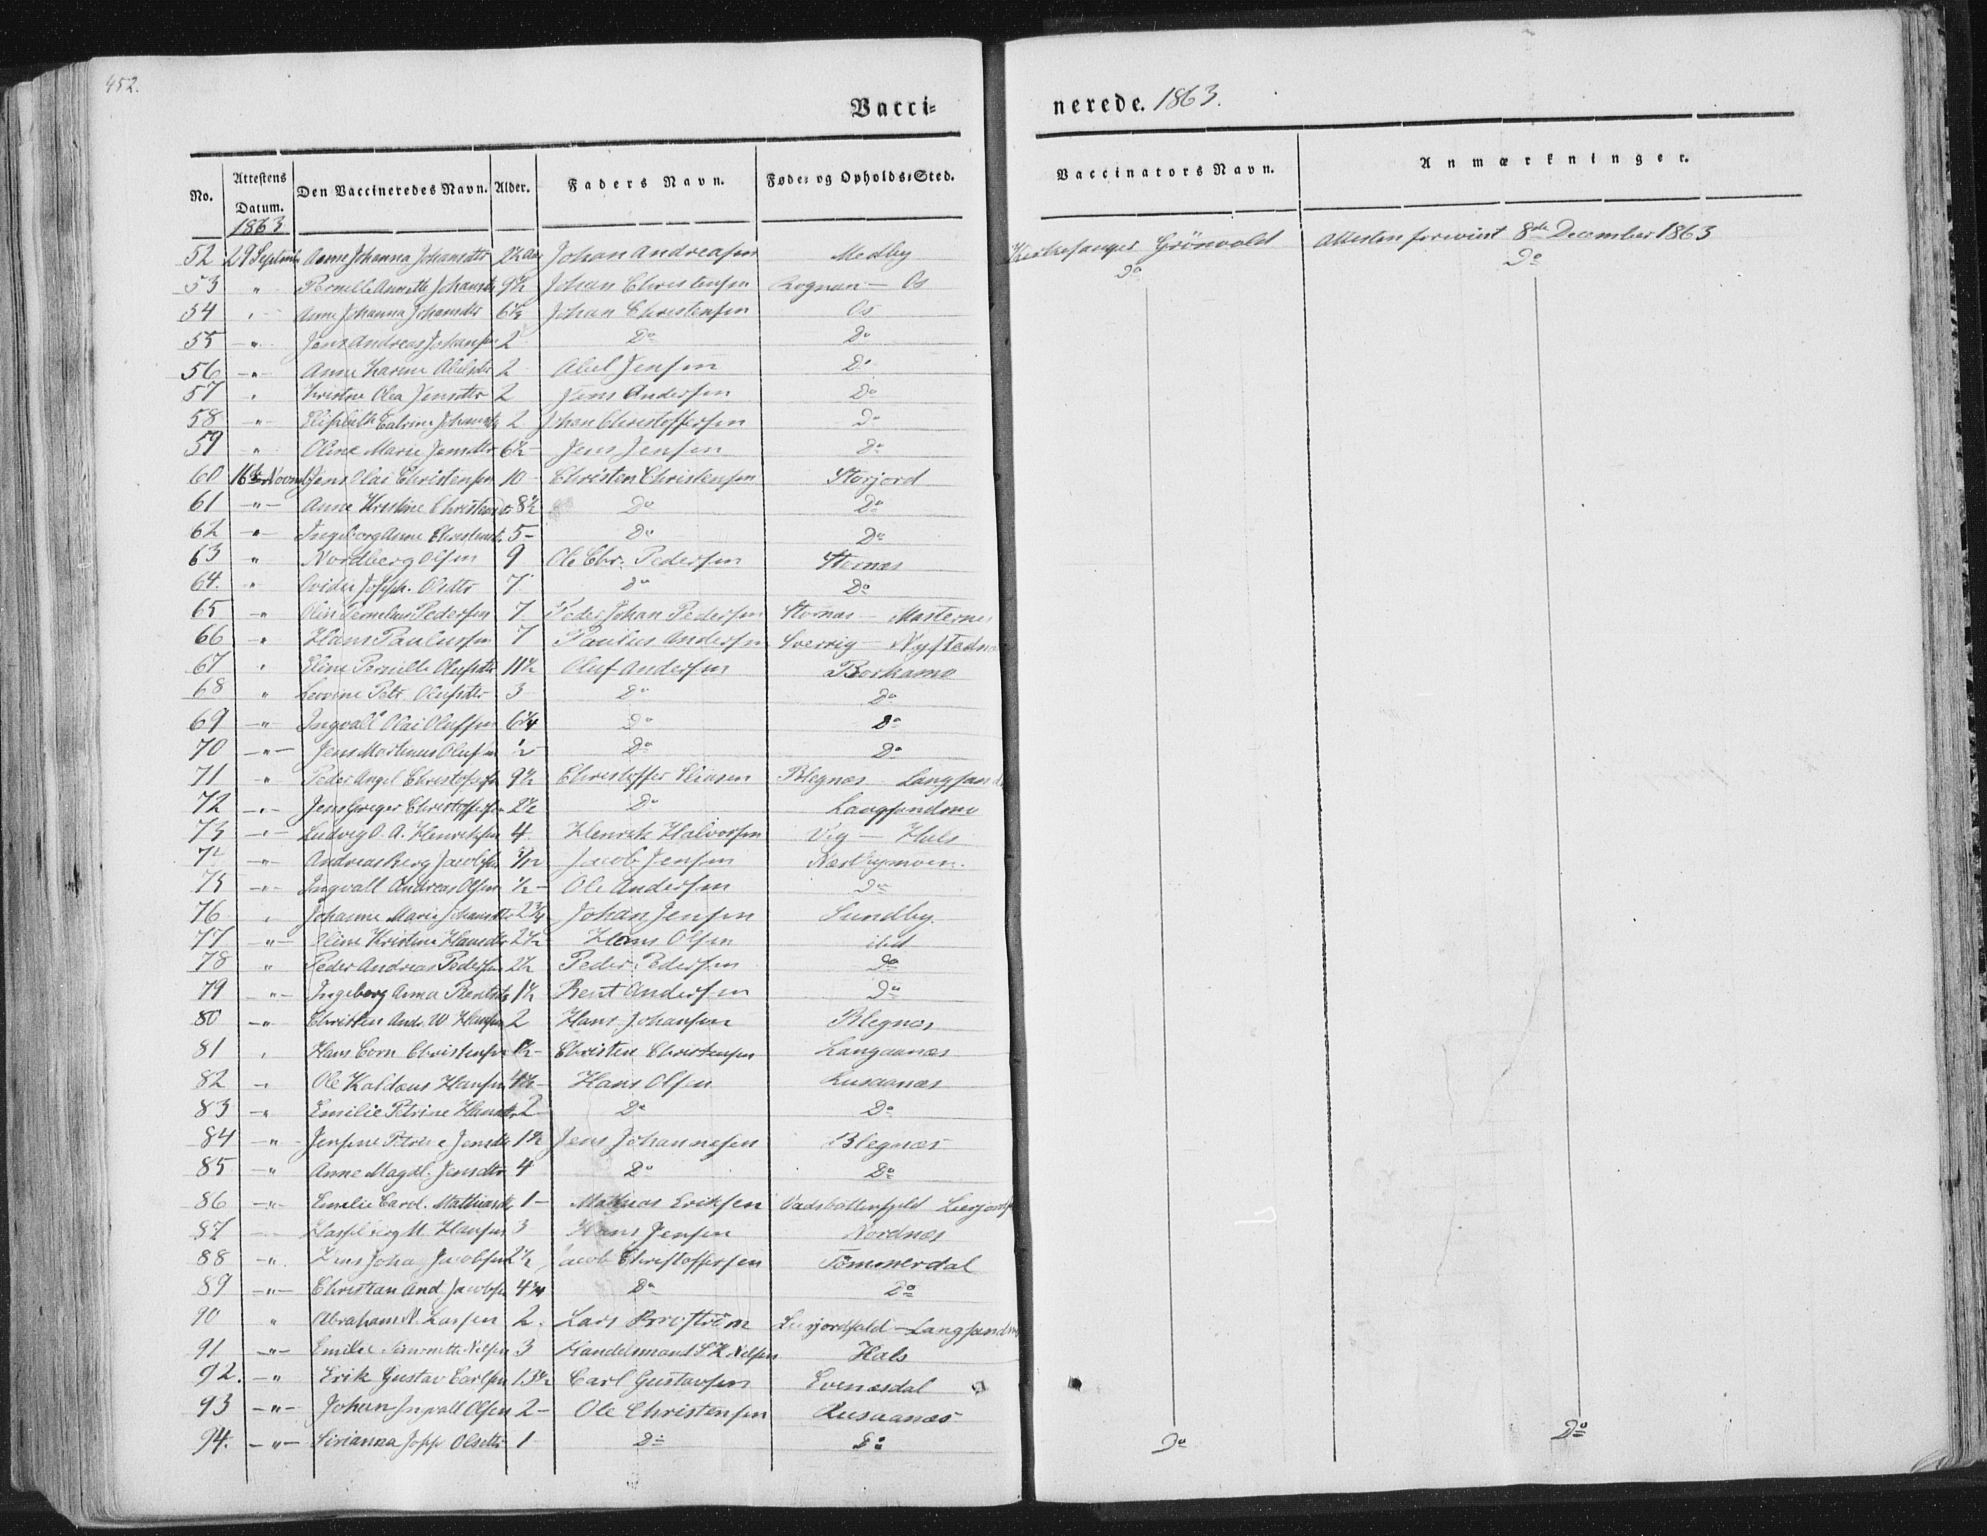 452.
Vacci=
nerede. 1863.
No. Attestens Datum. Den Vaccineredes Navn. Alder. Faders Navn. Føde= og Opholds=Sted. Vaccinators Navn. Anmærkninger.
1863
52 29 Septmb Anne Johanna Johansdtr 2½ Aar Johan Andreasen Medby Kirkesanger Grönvold Attesten forevist 8de December 1863
53 " Pernille Annette Johansdtr 9½ Johan Christensen Rognan — Os Do Do
54 " Anne Johanna Johansdtr 6½ Johan Christensen Os
55 " Jens Andreas Johansen 2 Do Do
56 " Anne Karine Abelsdtr 2 Abel Jensen Do
57 " Kristine Olea Jensdtr 2 Jens Andersen Do
58 " Elisabeth Catrine Johansdtr 2 Johan Christoffersen Do
59 " Oline Marie Jensdtr 6½ Jens Jensen Do
60 16de Novmb Jens Olai Christensen 10 Christen Christensen Storjord
61 " Anne Kristine Christensdtr 8½ Do Do
62 " Ingeborg Anne Christensdtr 5 - Do Do
63 " Nordberg Olsen 9 Ole Chr. Pedersen Stornæs
64. " Joseph. Olsdtr 7 Do Do
65 " Pedersen 7 Peder Johan Pedersen Stornæs —
66 " Hans Paulussen 7 Paulus Andersen
67 " Eline Pernille Olufsdtr 11½ Oluf Andersen
68 " Petr. Olufsdtr 3 Do Do
69 " Ingvall Olai Olufsen 6¼ Do Do
70 " Jens Martinus Olufsen ½ Do Do
71 " Peder Angel Christoffersen 9½ Christoffer Blegnæs
72 " Jens Greger Christoffersen 2½ Do Langsandmo
73 " Ludvig O. A. Henriksen 4 Henrik Halvorsen Vig — Hals
" Andreas Berg Jacobsen Jacob Jensen
75 " Ingvall Andreas Olsen ½ - Ole Andersen Do
76 " Johanne Marie Johansdtr 2¾ Johan Jensen Sundby
77 " Oline Kristine Hansdtr 2½ Hans Olsen ibid
78 " Peder Andreas Pedersen 2½ Peder Pedersen Do
79 " Ingeborg Anna Bentsdtr 1½ Bent Andersen Do
80 " Christen Andr. W Hansen 2 Hans Johansen Blegnæs
81 " Hans Corn Christensen Christen Christensen Langaanæs
82 " Ole Kaldaus Hansen 4½ Hans Olsen Lusaanæs
83 " Emilie Petrine Hansdtr 2 Do Do
84 " Jensine Petrine Jensdtr 1½ Jens Johannesen Blegnæs
85 " Anne Magdl. Jensdtr 4 Do Do
86 " Emelie Carol. Mathiasdtr 1 - Mathias Eriksen
87 " M. Hansen 3 Hans Jensen Nordnæs
88 " Johan Jacobsen 2½ Jacob Christoffersen Tömmerdal
89 " Christan And Jacobsen 4¾ Do Do
90 " Abraham N. Larsen 2. Lars Broström
91 " Nilsen 3 Handelsmand Nilsen Hals
92. " Erik Gustav Carlsen 13½ Carl Gustavsen Evenesdal
93 " Johan Ingvall Olsen 2 - Ole Christensen Rusaanæs
94. " Olsdtr 1 Do Do Do Do